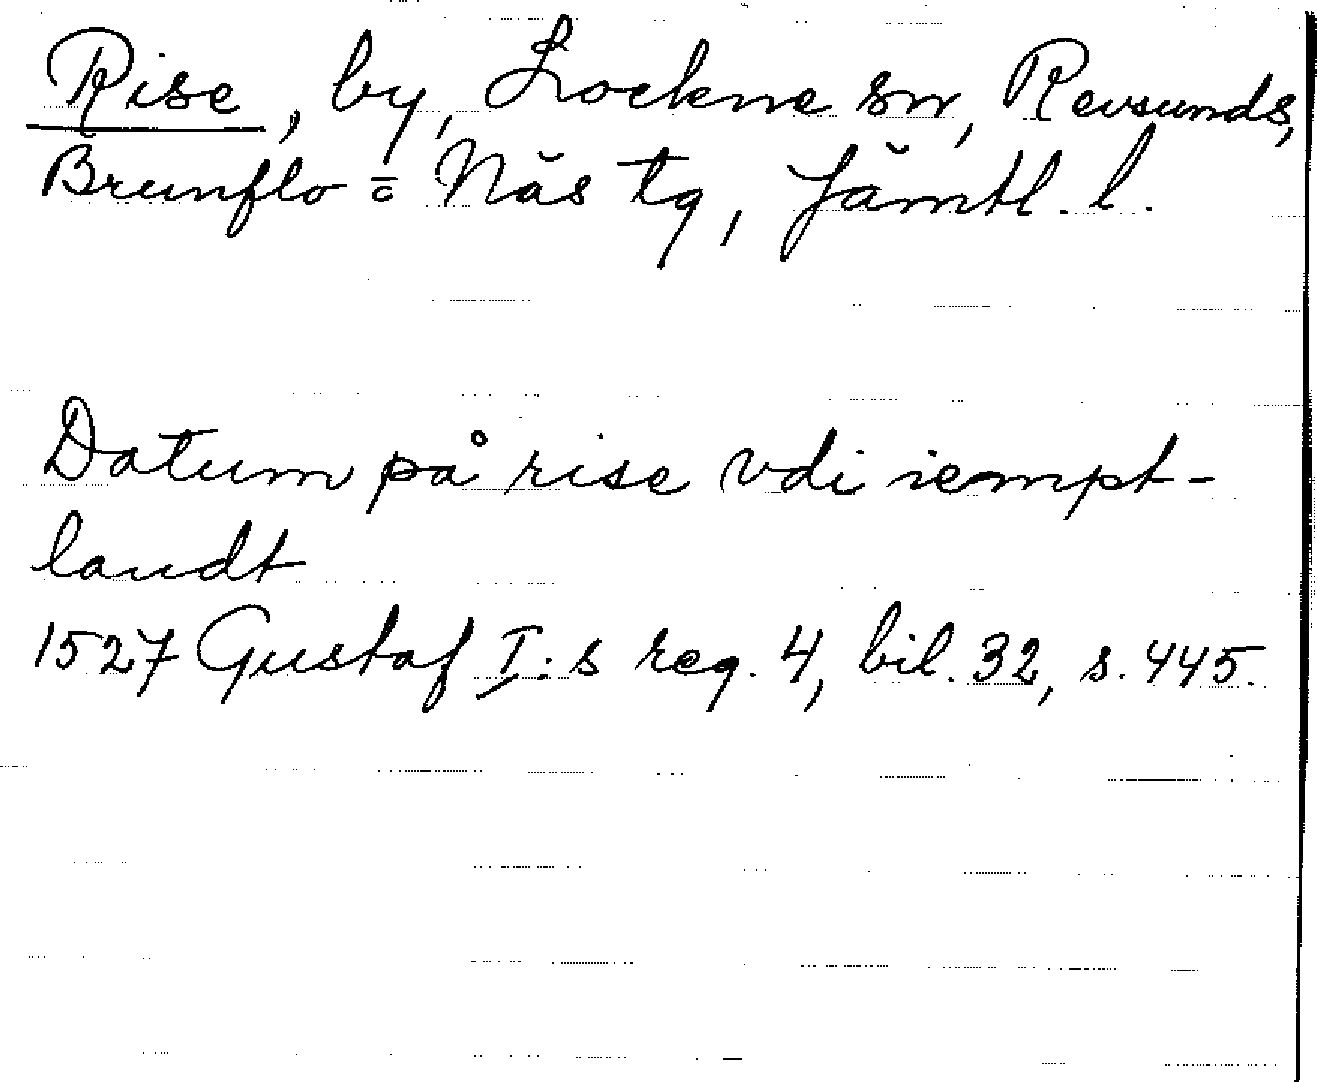 Rise, by, Lockne sn, Revsunds,
Brunflo = Näs tg, Jämtl. l.
Datum på rise vdi iempt-
landt
1527 Gustaf I:s reg. 4, bil. 32, s. 445.